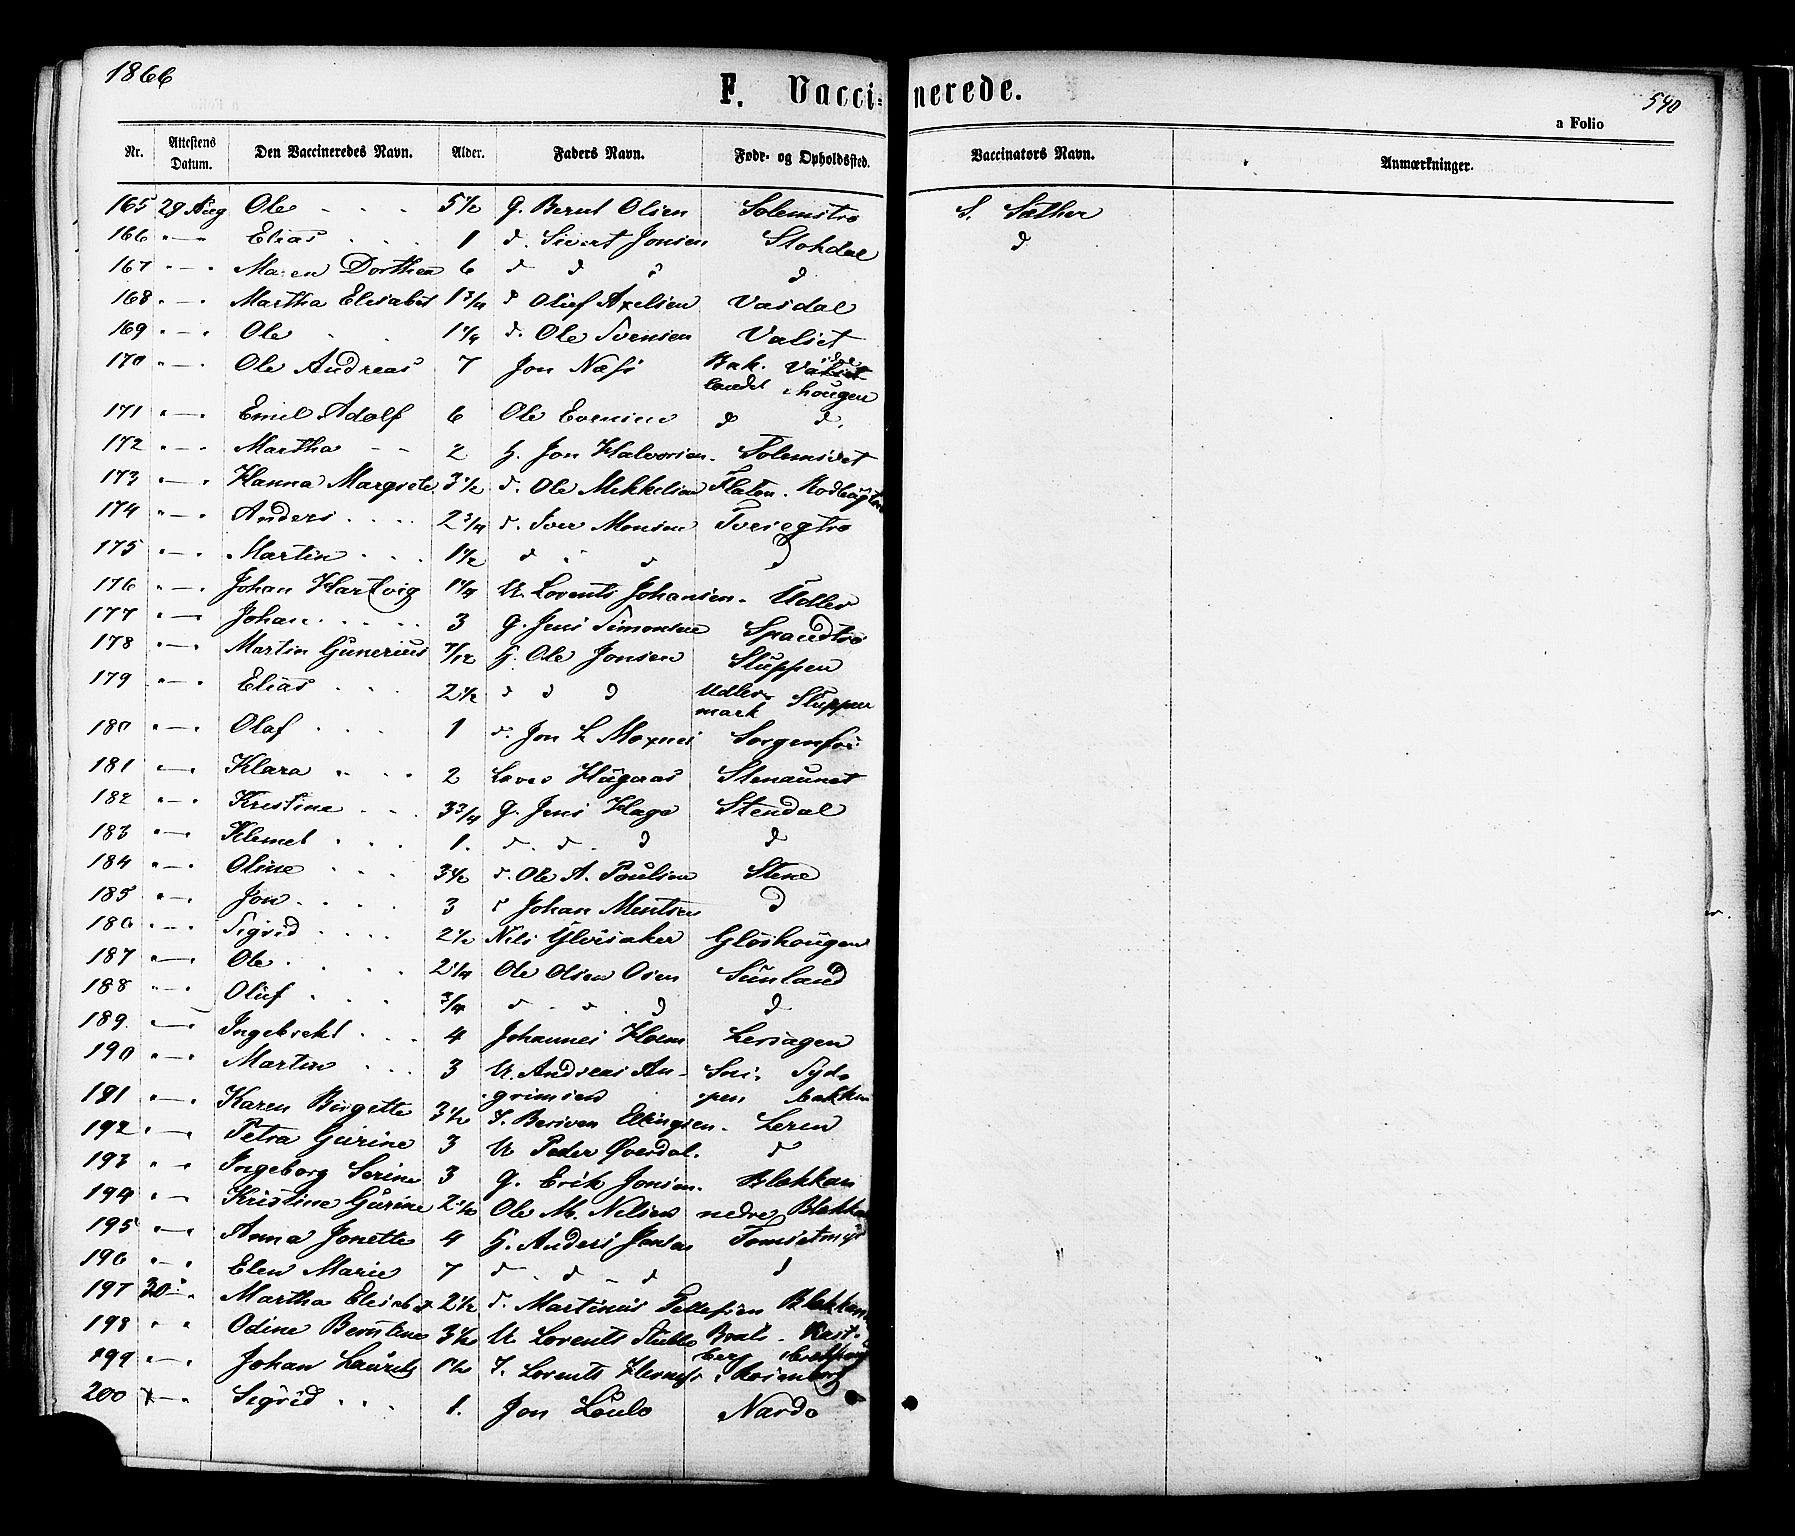 1866
F. Vaccinerede.
540
a Folio
Nr. Attestens Datum. Den Vaccineredes Navn. Alder. Faders Navn. Føde- og Opholdssted. Vaccinators Navn. Anmærkninger.
165 29 Aug Ole 5 1/2 G. Bernt Olsen Solemstrø S. Sæther
166 " — " Elias 1 d. Sivert Jonsen Stokdal d
167 " — " Maren Dorthea 6 d d d d
168 " — " Martha Elisabet 1 3/4 d Oluf Axelsen Vasdal
169 " — " Ole 1 1/4 d. Ole Svensen Valset
170 " — " Ole Andreas 7 Jon Næss Bak-
landet hougen
171 " — " Emil Adolf 6 Ole Evensen d d.
172 " — " Martha 2 H. Jon Halvorsen Solemsvet
173 " — " Hanna Margrete 3 1/2 d. Ole Mikkelsen Flaten.
174 " — " Anders 2 3/4 d. Iver Monsen
175 " — " Martin 1 1/2 d " d d
176 " — " Johan Hartvig 1 1/4 U. Lorents Johansen. Udler
177 " — " Johan 3 G. Jens Simonsen
178 " — " Martin Gunerius 7/12 H. Ole Jonsen Sluppen
179 " — " Elias 2 1/2 d d d Udler-
mark Sluppen
180 " — " Olaf 1 d. Jon L Moxnes Sorgenfri
181 " — " Klara 2 Hugaas Stenaunet
182 " — " Kristine 3 3/4 G. Jens Hage Stendal
183 " — " Klemet 1. d. d. d d
184 " — " Oline 3 1/2 d. Ole A. Poulsen Stene
185 " — " Jon 3 d Johan Mentsen d
186 " — " Sigrid 2 1/2 Nils Ylvisaker Gløshougen
187 " — " Ole 2 1/4 Ole Olsen Osen Sunland
188 " — " Oluf 3/4 d d d d
189. " — " Ingebrekt 4 Johannes Hoem Lersagen
190 " — " Martin 3 U. Andreas An-
grimsen bakken
191 " — " Karen Birgette 3 1/2 Ellingsen. Leren
192 " — " Petra Gurine 3 U Peder Øverdal. d
193 " " Ingeborg Serine 3 G. Erik Jonsen. Blekkan
194 " — " Kristine Gurine 2 1/2 Ole M. Nilsen nedre Blekkan
195 " — " Anna Jonette 4 H. Anders Jensen
196 " — " Elen Marie 7 d. d d d
197 30 — " Martha Elisabet 2 1/2 d. Martinus Tellefsen Blekkan
198 " " Odine Berntine 3 1/2 U Lorents Stubbe
berg
199 " — " Johan Laurits 1 1/2 Lorents Rosenborg
200 — " Sigrid 1. Jon Nardo